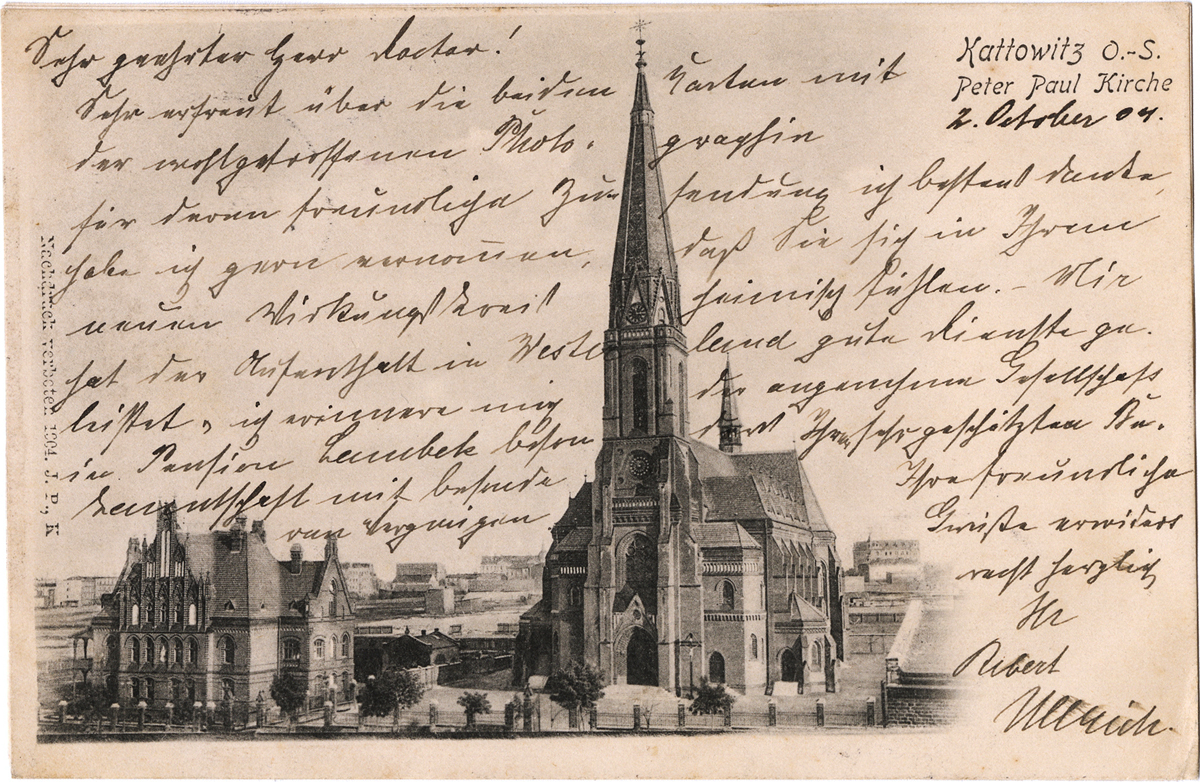 Kattowitz O.-S.
Peter Paul Kirche
2. October 04.
Sehr geehrter Herr Doctor!
Sehr erfreut über die beiden Karten mit
der wohlgetroffenen Photo- graphie
für deren freundliche Zu- sendung ich bestens danke,
habe ich gern vernommen, daß Sie sich in Ihrem
neuen Wirkungskreis heimisch fühlen. - Mir
hat der Aufenthalt in Wester land gute Dienste ge-
leistet, ich erinnere mich der angenehmen Gesellschaft
in Pension Lembek beson ders Ihrer sehr geschätzten Be-
kanntschaft mit besonde
rem Vergnügen
Ihre freundliche
Grüße erwidert
recht herzlich
Ihr
Robert
Ullrich.
Nachdruck verboten 1904 J. P., K